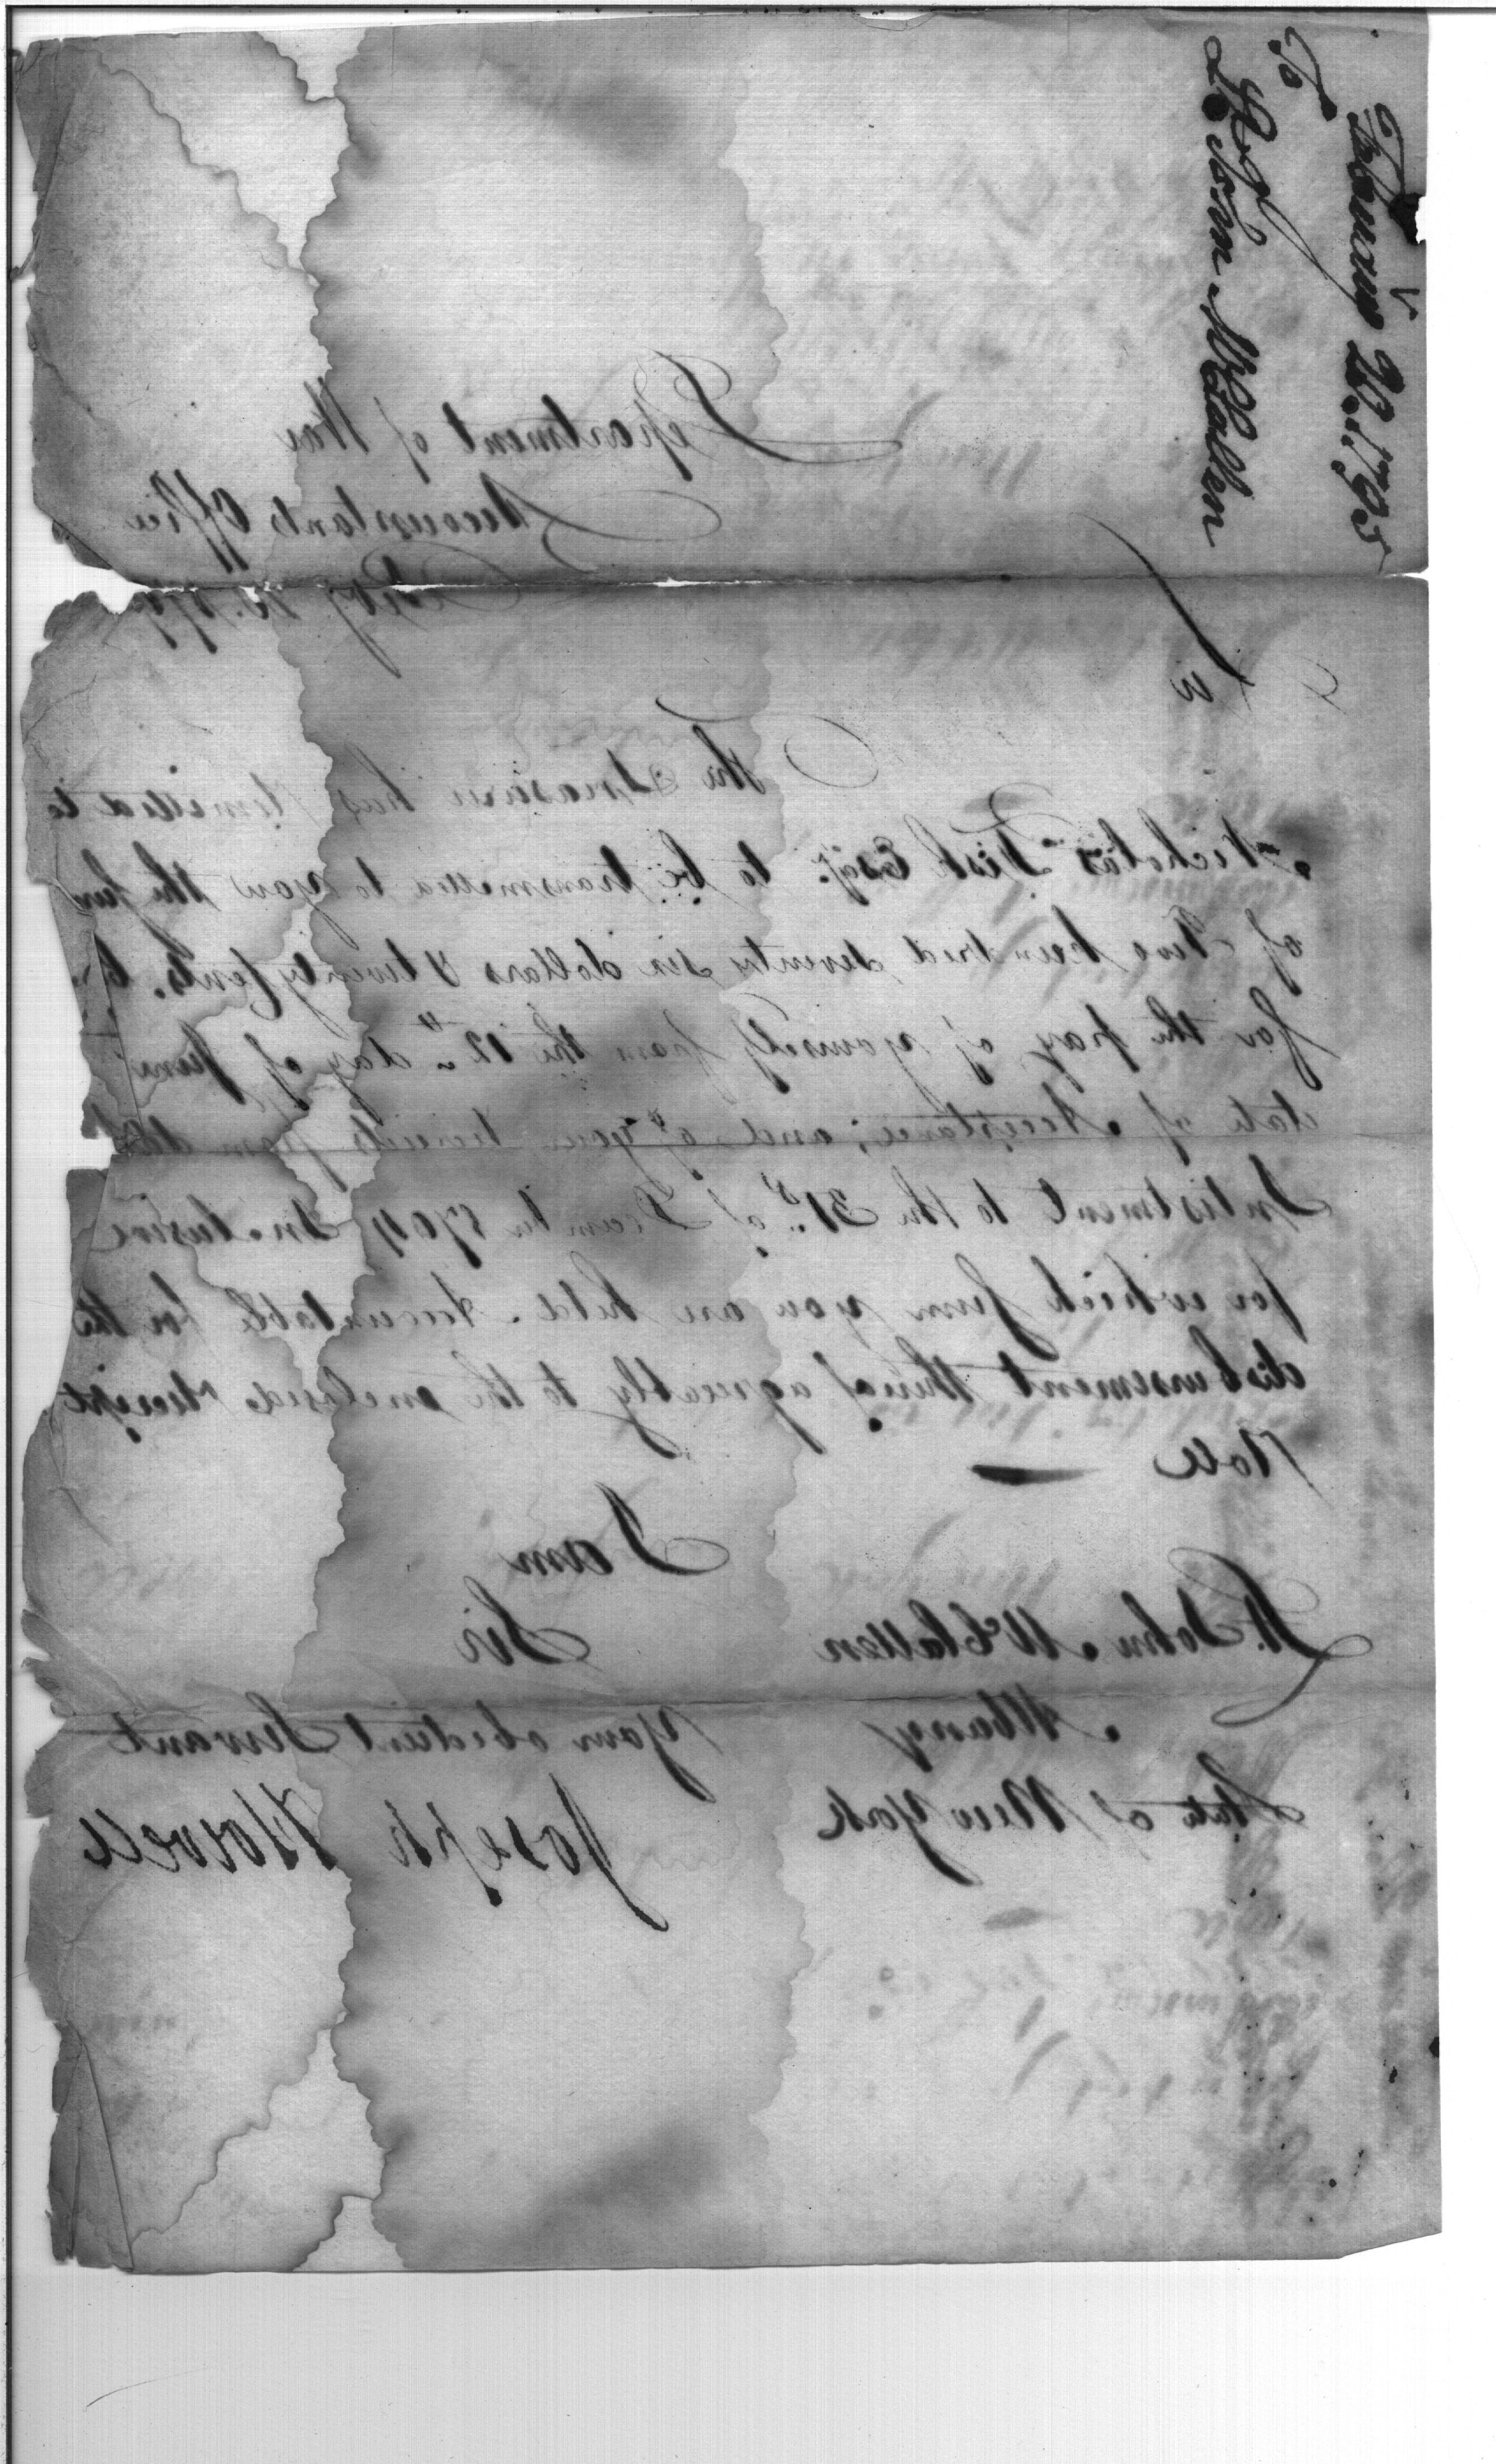 February 20. 1795
To
Lt. John McClallen
Department of War
Accountants Office
Feby 20. 179
Sir
The Treasurer has remitted to
Nicholas Fish Esqr. to be transmitted to you the sum
of two hundred seventy six dollars & twenty Cents.
for the pay of yourself from the 12th day of June
date of Acceptance; and of your recruits from
Inlistment to the 31st of December 1794 Inclusive
for which sum you are held Accountable for the
disbursement thereof agreeably to the enclosed receipt
Roll —
I am
Sir
Lt. John McClallen
Albany
State of New York
Your obedient Servant
Joseph Howell